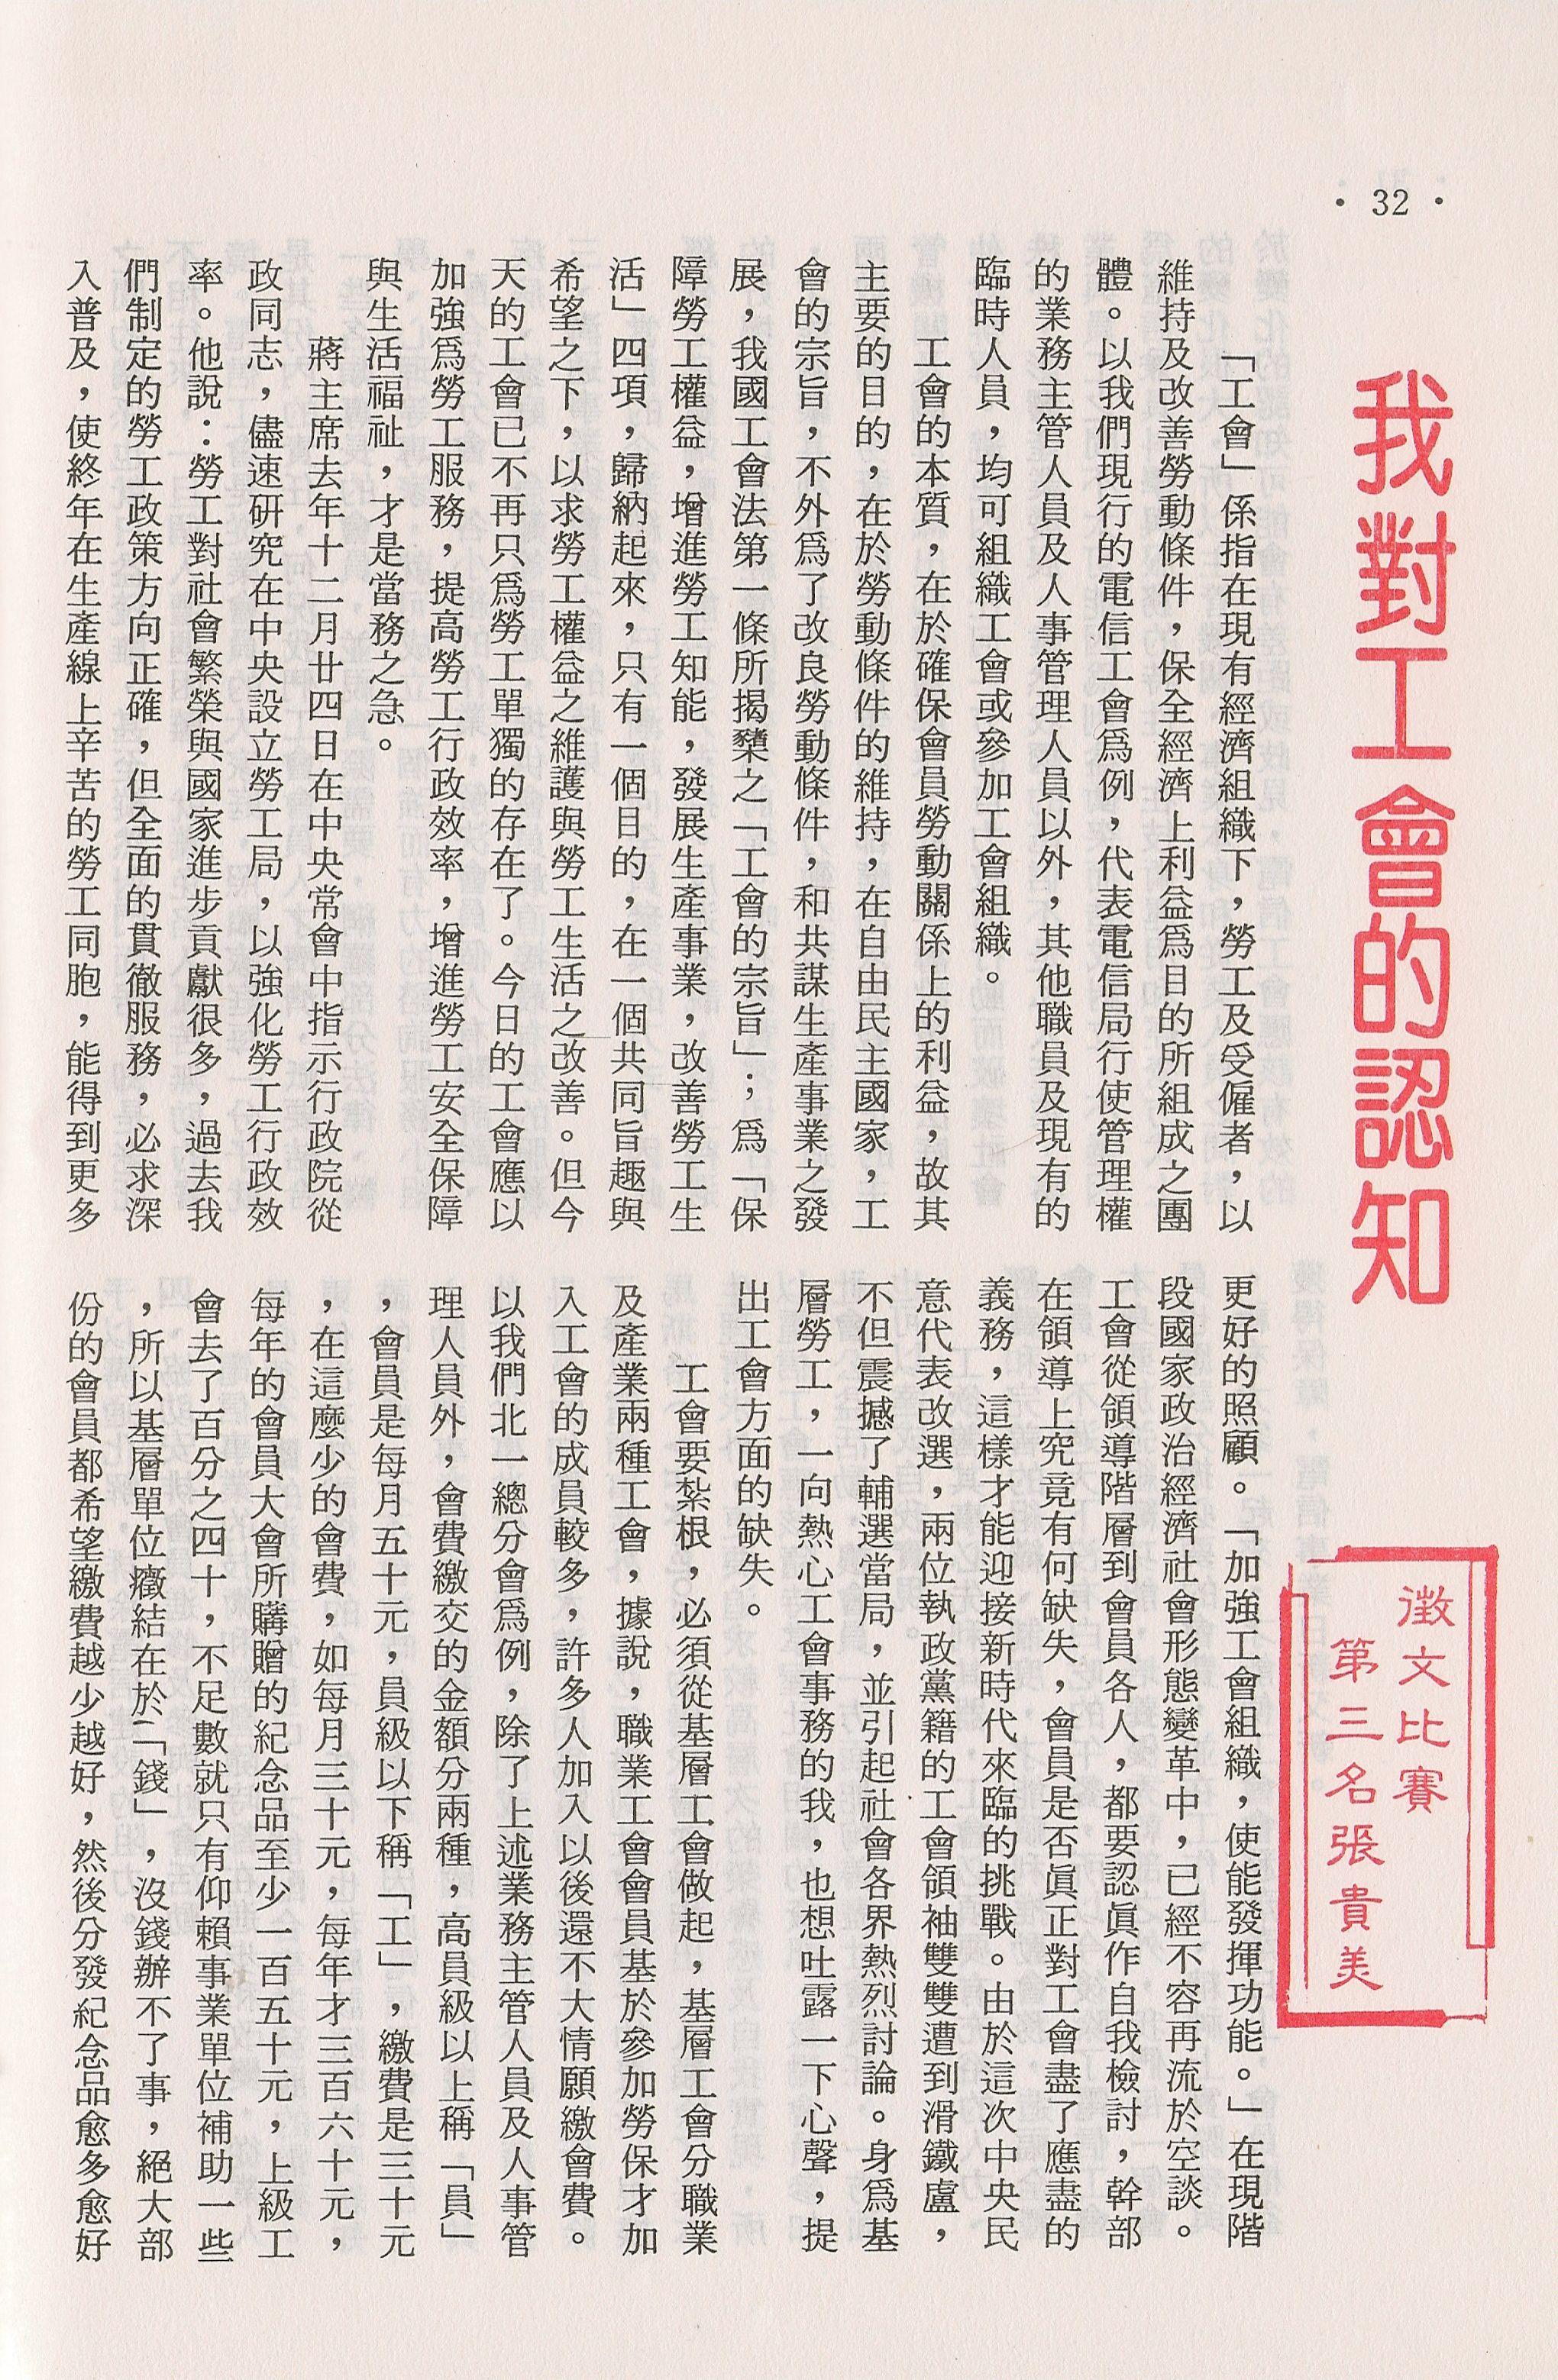 • 32 •
我對工會的認知
徵文比賽
第三名張貴美
「工會」係指在現有經濟組織下，勞工及受僱者，以
維持及改善勞動條件，保全經濟上利益爲目的所組成之團
體。以我們現行的電信工會爲例，代表電信局行使管理權
的業務主管人員及人事管理人員以外，其他職員及現有的
臨時人員，均可組織工會或參加工會組織。
工會的本質，在於確保會員勞動關係上的利益，故其
主要的目的，在於勞動條件的維持，在自由民主國家，工
會的宗旨，不外爲了改良勞動條件，和共謀生產事業之發
展，我國工會法第一條所揭櫫之「工會的宗旨」；爲「保
障勞工權益，增進勞工知能，發展生產事業，改善勞工生
活」四項，歸納起來，只有一個目的，在一個共同旨趣與
希望之下，以求勞工權益之維護與勞工生活之改善。但今
天的工會已不再只爲勞工單獨的存在了。今日的工會應以
加強爲勞工服務，提高勞工行政效率，增進勞工安全保障
與生活福祉，才是當務之急。
蔣主席去年十二月廿四日在中央常會中指示行政院從
政同志，儘速研究在中央設立勞工局，以強化勞工行政效
率。他說：勞工對社會繁榮與國家進步貢獻很多，過去我
們制定的勞工政策方向正確，但全面的貫徹服務，必求深
入普及，使終年在生產線上辛苦的勞工同胞，能得到更多
更好的照顧。「加強工會組織，使能發揮功能。」在現階
段國家政治經濟社會形態變革中，已經不容再流於空談。
工會從領導階層到會員各人，都要認眞作自我檢討，幹部
在領導上究竟有何缺失，會員是否眞正對工會盡了應盡的
義務，這樣才能迎接新時代來臨的挑戰。由於這次中央民
意代表改選，兩位執政黨籍的工會領袖雙雙遭到滑鐵盧，
不但震撼了輔選當局，並引起社會各界熱烈討論。身爲基
層勞工，一向熱心工會事務的我，也想吐露一下心聲，提
出工會方面的缺失。
工會要紮根，必須從基層工會做起，基層工會分職業
及產業兩種工會，據說，職業工會會員基於參加勞保才加
入工會的成員較多，許多人加入以後還不大情願繳會費。
以我們北一總分會爲例，除了上述業務主管人員及人事管
理人員外，會費繳交的金額分兩種，高員級以上稱「員」
，會員是每月五十元，員級以下稱「工」，繳費是三十元
，在這麼少的會費，如每月三十元，每年才三百六十元，
每年的會員大會所購贈的紀念品至少一百五十元，上級工
會去了百分之四十，不足數就只有仰賴事業單位補助一些
，所以基層單位癥結在於「錢」，沒錢辦不了事，絕大部
份的會員都希望繳費越少越好，然後分發紀念品愈多愈好